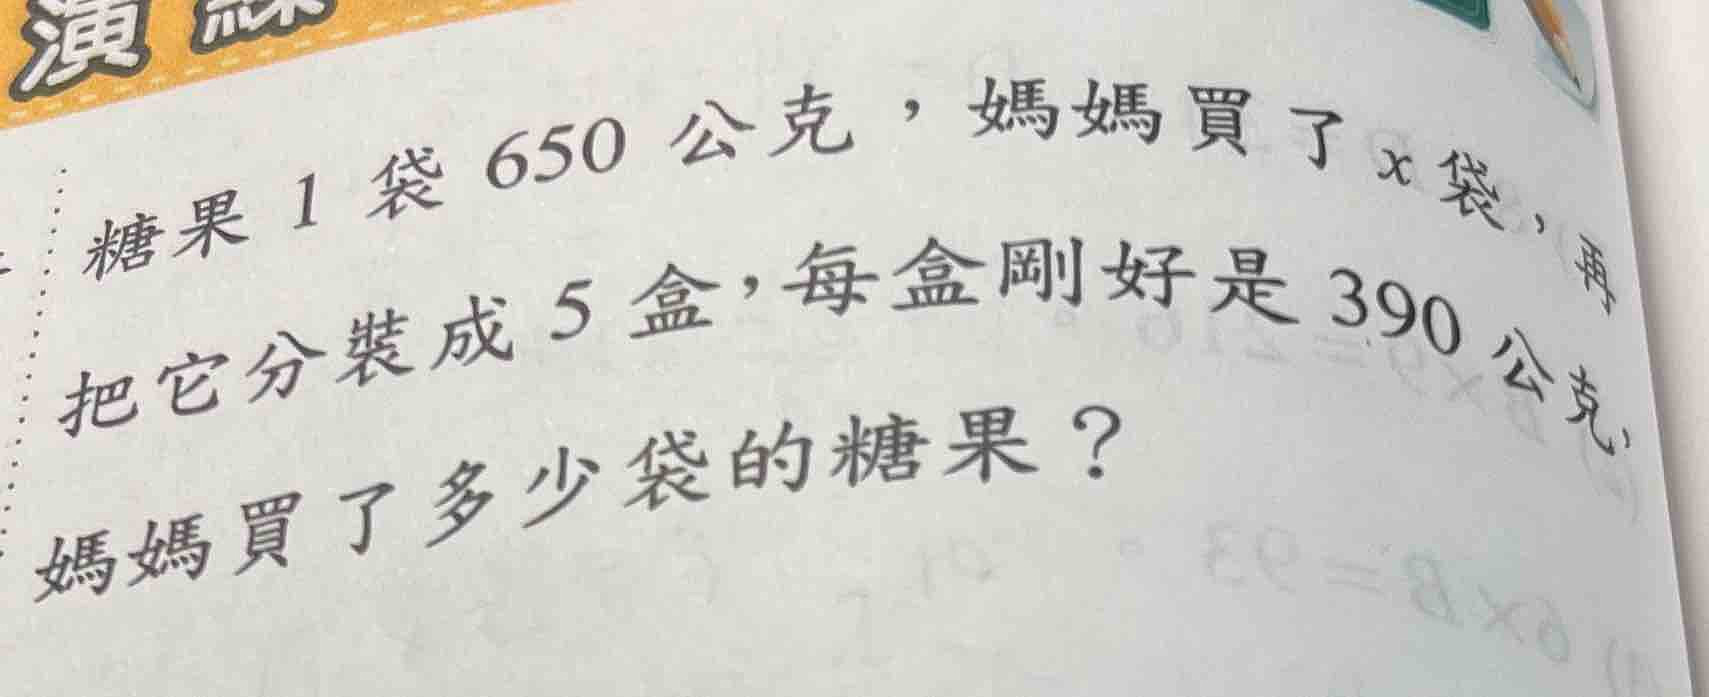 演練
糖果 1 袋 650 公克，媽媽買了 x 袋，再
把它分裝成 5 盒，每盒剛好是 390 公克，
媽媽買了多少袋的糖果？